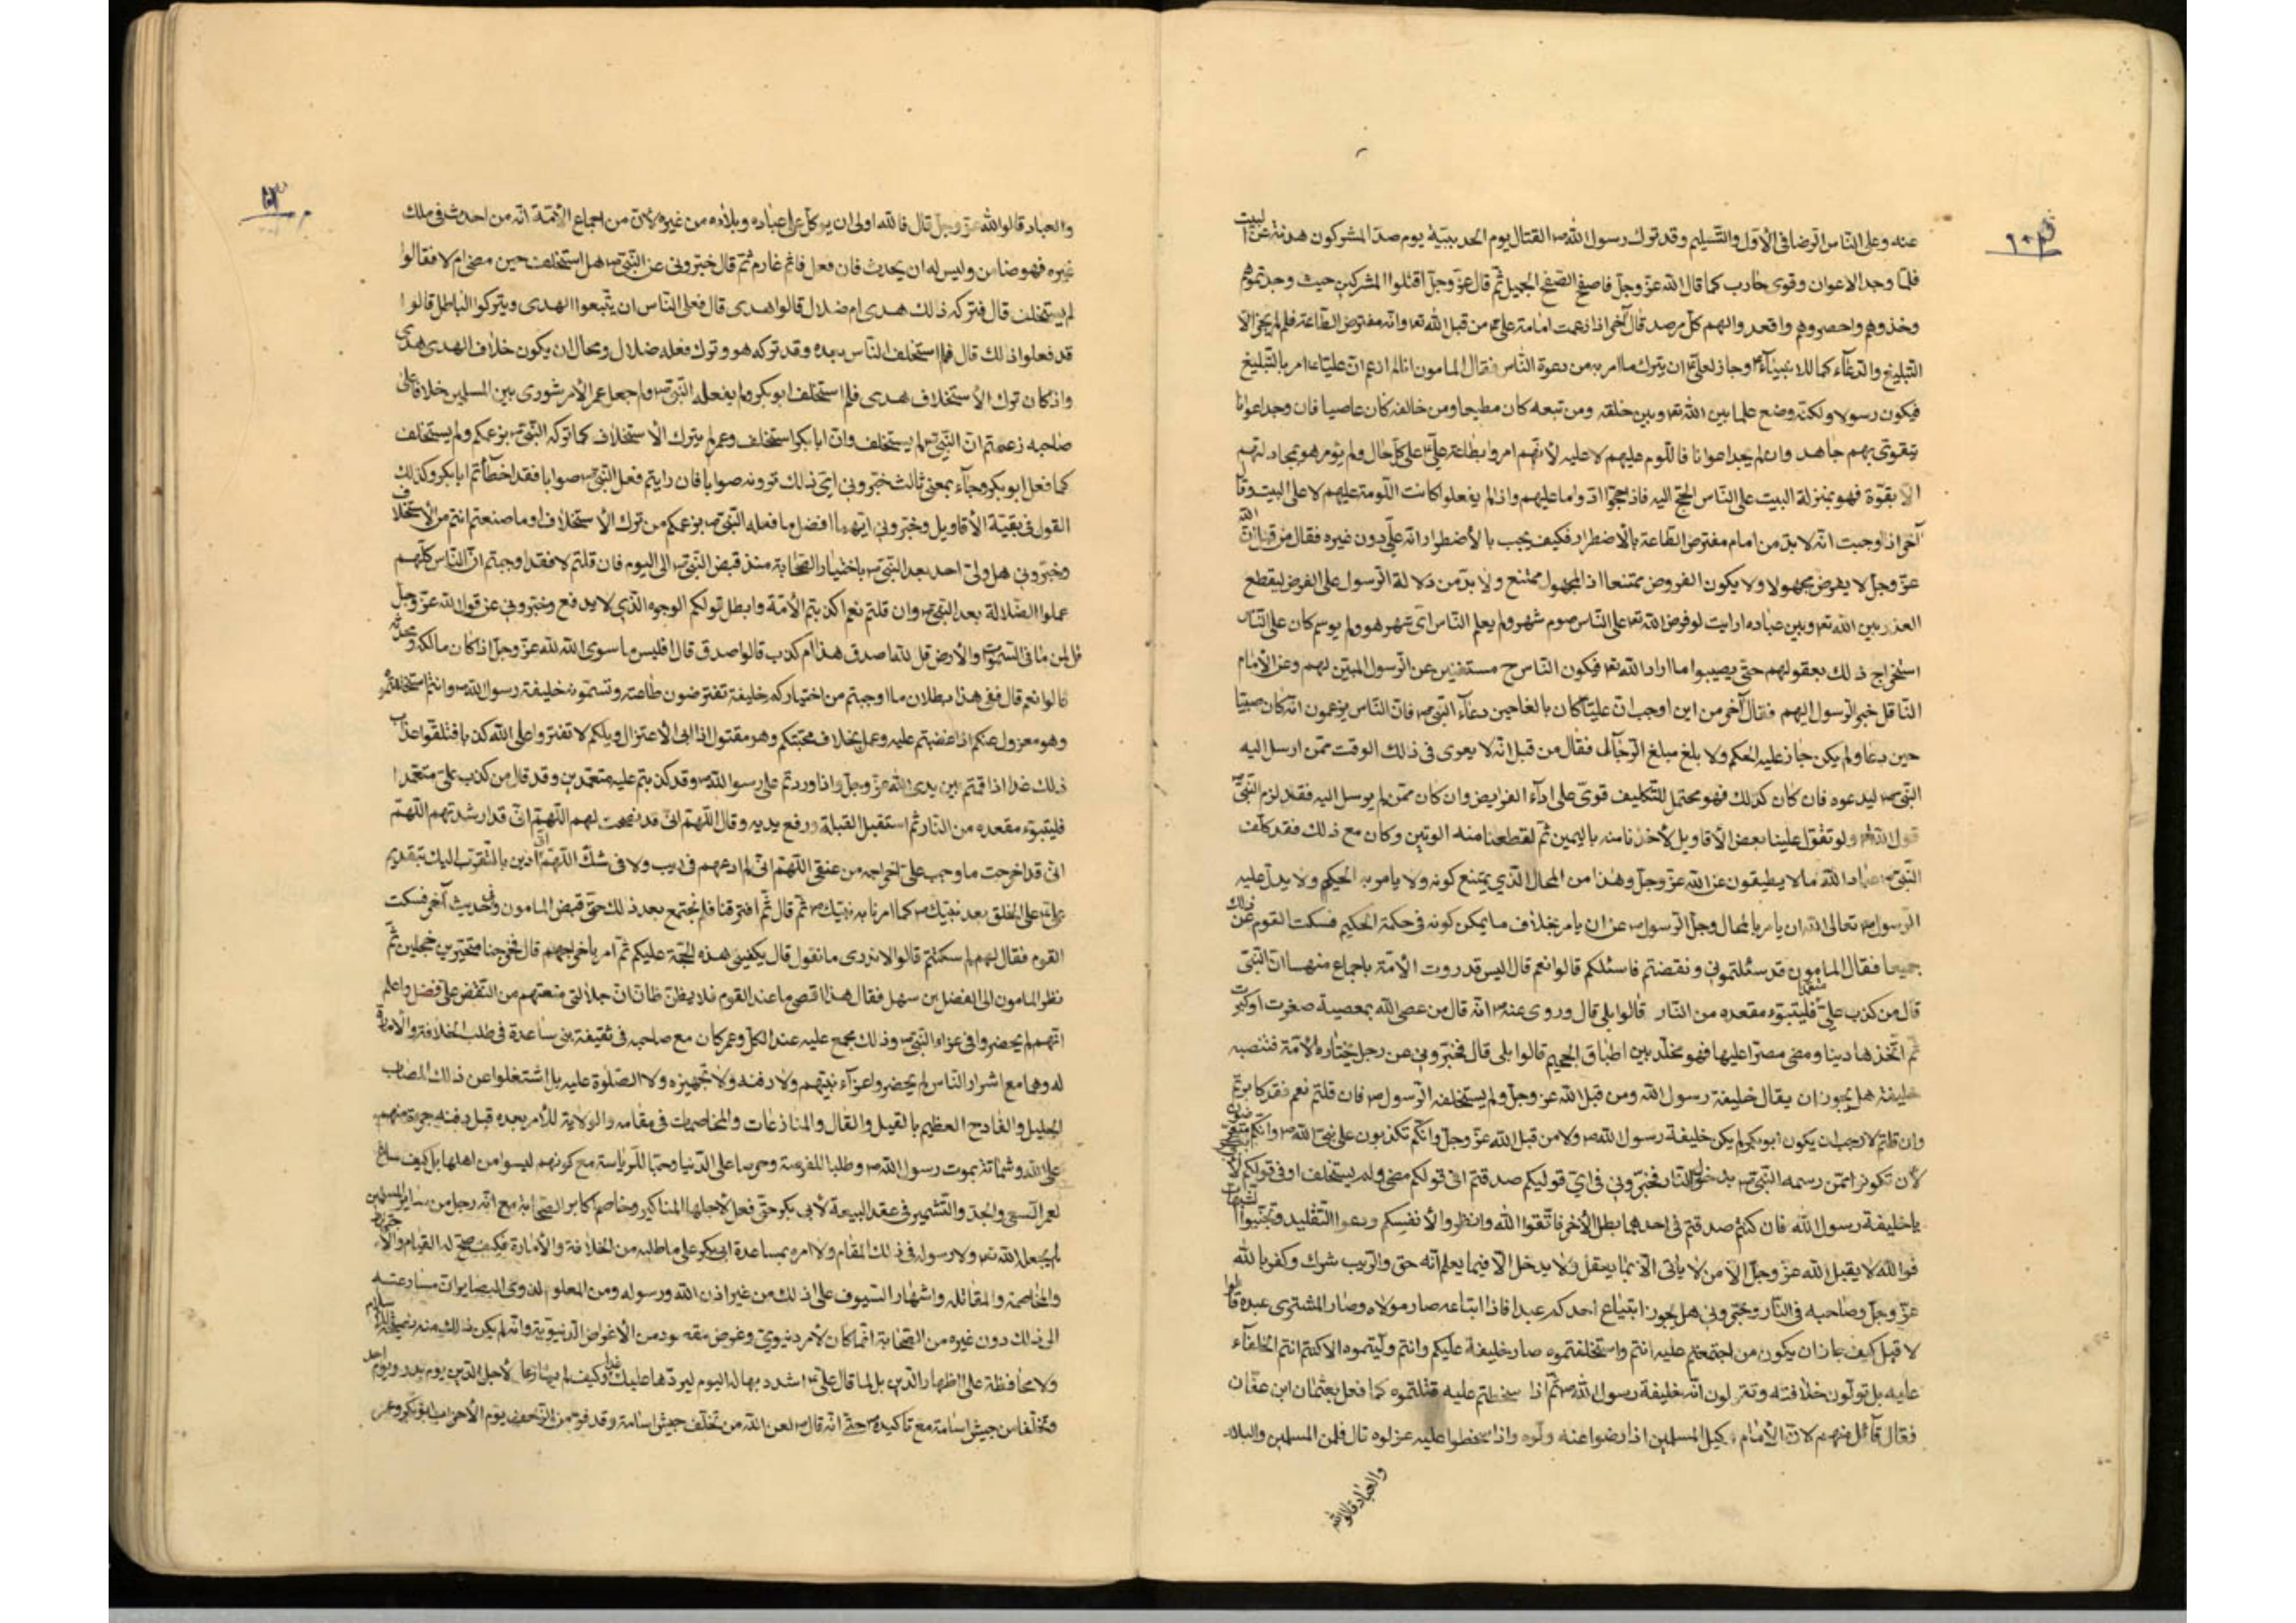 عنه وعلى الناس الرضا فى الأول والتسليم وقد ترك رسول الله ص القتال يوم الحديبية يوم صدّ المشركون هديه عن البيت
فلمّا وجد الاعوان وقوى حارب كما قال الله عزّ وجلّ فاصفح الصفح الجميل ثمّ قال عزّ وجلّ اقتلوا المشركين حيث وجدتموهم
وخذوهم واحصروهم واقعدوا لهم كلّ مرصد قال آخر اذا زعمت امامة على ع من قبل الله تع وانّه مفترض الطاعة فلم لم يجز الاّ
التبليغ والدعآء كما للانبيآء ع وجاز لعلى ع ان يترك ما امر به من دعوة الناس فقال المامون انا لم ازعم انّ عليّا ع امر بالتبليغ
فيكون رسولا ولكنه وضع علما بين الله تع وبين خلقه ومن تبعه كان مطيعا ومن خالفه كان عاصيا فان وجد اعوانا
يتقوّى بهم جاهد وان لم يجد اعوانا فاللّوم عليهم لا عليه لأنّهم امروا بطاعة علىّ ع على كلّ حال ولم يؤمر هو بمجاهدتهم
الاّ بقوّة فهو بمنزلة البيت على الناس الحجّ اليه فاذا حجّوا ادّوا ما عليهم واذا لم يفعلوا كانت اللّومة عليهم لا على البيت وقال
آخر اذا وجبت انّه لا بدّ من امام مفترض الطاعة بالأضطرار فكيف يجب بالأضطرار انّه علىّ دون غيره فقال من قبل انّ الله
عزّ وجلّ لا يفرض مجهولا ولا يكون المفروض ممتنعا اذ المجهول ممتنع ولا بدّ من دلالة الرسول على الفرض ليقطع
العذر بين الله تع وبين عباده ارايت لو فرض الله تع على الناس صوم شهر ولم يعلم الناس اىّ شهر هو ولم يوسم كان على الناس
استخراج ذلك بعقولهم حتّى يصيبوا ما اراد الله تع فيكون الناس ح مستغنين عن الرسول المبيّن لهم وعن الأمام
الناقل خبر الرسول اليهم فقال آخر من اين اوجبت انّ عليّا كان بالغا حين دعآه النبى ص فانّ الناس يزعمون انّه كان صبيّا
حين دعا ولم يكن جاز عليه الحكم ولا بلغ مبلغ الرجال فقال من قبل انّه لا يعرى فى ذلك الوقت ممّن ارسل اليه
النبى ص ليدعوه فان كان كذلك فهو محتمل للتكليف قوىّ على ادآء الفرايض وان كان ممّن لم يرسل اليه فقد لزم النبىّ ص
قول الله تع ولو تقوّل علينا بعض الأقاويل لأخذنا منه باليمين ثمّ لقطعنا منه الوتين وكان مع ذلك فقد كلّف
النبى ص عباد الله ما لا يطيقون عن الله عزّ وجلّ وهذا من المحال الذى يمتنع كونه ولا يامر به الحكيم ولا يدلّ عليه
الرسول ص تعالى الله ان يامر بالمحال وجلّ الرسول ص عن ان يامر بخلاف ما يمكن كونه فى حكمة الحكيم فسكت القوم عن ذلك
جميعا فقال المامون قد سئلتمونى ونقضتم فاسئلكم قالوا نعم قال اليس قد روت الأمّة باجماع منها انّ النبىّ
قال من كذب علىّ متعمّدا فليتبوّء مقعده من النار قالوا بلى قال وروى عنه ص انّه قال من عصى الله بمعصية صغرت او كبرت
ثمّ اتّخذها دينا ومضى مصرّا عليها فهو مخلّد بين اطباق الجحيم قالوا بلى قال فخبّرونى عن رجل يختاره الأمّة فتنصبه
خليفة هل يجوز ان يقال خليفة رسول الله ومن قبل الله عزّ وجلّ ولم يستخلفه الرسول ص فان قلتم نعم فقد كابرتم
وان قلتم لا وجب ان يكون ابو بكر لم يكن خليفة رسول الله ص ولا من قبل الله عزّ وجلّ وانّكم تكذبون على نبىّ الله ص وانّكم متعرّضون
لأن تكونوا ممّن وسمه النبى ص بدخول النار فخبّرونى فى اىّ قوليكم صدقتم افى قولكم مضى ولم يستخلف او فى قولكم لأبى بكر
يا خليفة رسول الله فان كنتم صدقتم فى احدهما بطل الأخر فاتّقوا الله وانظروا لأنفسكم ودعوا التقليد وتجنّبوا الشبهات
فوالله لا يقبل الله عزّ وجلّ الاّ من لا ياتى الاّ بما يعقل ولا يدخل الاّ فيما يعلم انّه حق والريب شرك وكفر بالله
عزّ وجلّ وصاحبه فى النار وخبّرونى هل يجوز ابتياع احدكم عبدا فاذا ابتاعه صار مولاه وصار المشترى عبده قالوا
لا قيل كيف جاز ان يكون من اجتمعتم عليه انتم واستخلفتموه صار خليفة عليكم وانتم ولّيتموه الا كنتم انتم الخلفآء
عليه بل تولّون خلافته وتقولون انّه خليفة رسول الله ص ثمّ اذا سخطتم عليه قتلتموه كما فعل بعثمان ابن عفّان
فقال قآئل منهم لانّ الأمام وكيل المسلمين اذا رضوا عنه ولّوه واذا سخطوا عليه عزلوه قال فلمن المسلمين والبلاد
والعباد قالوا لله
والعباد قالوا لله عزّ وجلّ قال فالله اولى ان يوكّل على عباده وبلاده من غيره لأنّ من اجماع الأمّة انّه من احدث فى ملك
غيره فهو ضامن وليس له ان يحدث فان فعل فاثم غارم ثمّ قال خبّرونى عن النبى ص هل استخلف حين مضى ام لا فقالوا
لم يستخلف قال فتركه ذلك هدى ام ضلال قالوا هدى قال فعلى الناس ان يتّبعوا الهدى ويتركوا الباطل قالوا
قد فعلوا ذلك قال فلم استخلف الناس بعده وقد تركه هو وترك فعله ضلال ومحال ان يكون خلاف الهدى هدى
واذ كان ترك الأستخلاف هدى فلم استخلف ابو بكر ولم يفعله النبى ص ولم جعل عمر الأمر شورى بين المسلمين خلافا على
صاحبه زعمتم انّ النبى ص لم يستخلف وانّ ابا بكر استخلف وعمر لم يترك الأستخلاف كما تركه النبى ص بزعمكم ولم يستخلف
كما فعل ابو بكر وجآء بمعنى ثالث خبّرونى اىّ ذلك ترونه صوابا فان رايتم فعل النبى ص صوابا فقد اخطأتم ابا بكر وكذلك
القول فى بقيّة الأقاويل وخبّرونى ايّهما افضل ما فعله النبى ص بزعمكم من ترك الأستخلاف او ما صنعتم انتم من الأستخلاف
وخبّرونى هل ولّى احد بعد النبى ص باختيار الصحابة منذ قبض النبى ص الى اليوم فان قلتم لا فقد اوجبتم انّ الناس كلّهم
عملوا الضلالة بعد النبى ص وان قلتم نعم اكذبتم الأمّة وابطل قولكم الوجود الذى لا يدفع وخبّرونى عن قول الله عزّ وجلّ
قل لمن ما فى السموات والأرض قل لله اصدق هذا ام كذب قالوا صدق قال افليس ما سوى الله لله عزّ وجلّ اذ كان مالكه ومحدثه
قالوا نعم قال ففى هذا بطلان ما اوجبتم من اختياركم خليفة تفترضون طاعته وتسمّونه خليفة رسول الله ص وانتم استخلفتموه
وهو معزول عنكم اذا غضبتم عليه وعمل بخلاف محبّتكم وهو مقتول اذا ابى الأعتزال ويلكم لا تفتروا على الله كذبا فتلقوا عذاب
ذلك غدا اذا قمتم بين يدى الله عزّ وجلّ واذا وردتم على رسول الله ص وقد كذبتم عليه متعمّدين وقد قال من كذب علىّ متعمّدا
فليتبوّء مقعده من النار ثمّ استقبل القبلة ورفع يديه وقال اللّهمّ انّى قد نصحت لهم اللّهمّ انّى قد ارشدتهم اللّهمّ
انّى قد اخرجت ما وجب علىّ اخراجه من عنقى اللّهمّ انّى لم ادعهم فى ريب ولا فى شكّ اللّهمّ انّى ادين بالتقرّب اليك بتقديم
على ع على الخلق بعد نبيّك ص كما امرنا به نبيّك ص ثمّ قال ثمّ افترقنا فلم نجتمع بعد ذلك حتّى قبض المامون وفى حديث آخر فسكت
القوم فقال لهم لم سكتّم قالوا لا ندرى ما نقول قال يكفينى هذه الحجّة عليكم ثمّ امر باخراجهم قال فخرجنا متحيّرين خجلين ثمّ
نظر المامون الى الفضل بن سهل فقال هذا اقصى ما عند القوم فلا يظنّ ظانّ انّ جلالتى منعتهم من النقض علىّ فضل واعلم
انّهم لم يحضروا فى عزاء النبى ص وذلك مجمع عليه عند الكلّ وعمر كان مع صاحبه فى ثقيفة بنى ساعدة فى طلب الخلافة والأمارة
له وهما مع اشرار الناس لم يحضروا عزآء نبيّهم ولا دفنه ولا تجهيزه ولا الصلوة عليه بل اشتغلوا عن ذلك المصاب
الجليل والفادح العظيم بالقيل والقال والمنازعات والمخاصمات فى مقامه والولاية للأمر بعده قبل دفنه جرءة منهم
على الله وشماتة بموت رسول الله ص وطلبا للفرصة وحرصا على الدنيا وحبّا للرياسة مع كونهم ليسوا من اهلها بل كيف ساغ
لعمر السعى والجدّ والتشمير فى عقد البيعة لأبى بكر حتّى فعل لأجلها المناكير وخاصم اكابر الصحابة مع انّه رجل من ساير المسلمين
لم يجعل الله تع ولا رسوله فى ذلك المقام ولا امره بمساعدة ابى بكر على ما طلبه من الخلافة والأمارة فكيف صحّ له القيام
والمخاصمة والمقاتلة واشهار السيوف على ذلك من غير اذن الله ورسوله ومن المعلوم لذوى البصاير انّ مسارعته
الى ذلك دون غيره من الصحابة انّما كان لأمر دنيوىّ وغرض مقصود من الأغراض الدنيويّة وانّه لم يكن ذلك منه نصيحة للأسلام
ولا محافظة على اظهار الدين بل لما قال على ع اشدد بها له اليوم ليردّها عليك غدا وكيف لم يسارعا لأجل الدين يوم بدر ويوم احد
وتخلّفا من جيش اسامة مع تاكيده ص حتّى انّه قال ص لعن الله من تخلّف جيش اسامة وقد فرّ من الزحف يوم الأحزاب ابو بكر وعمر